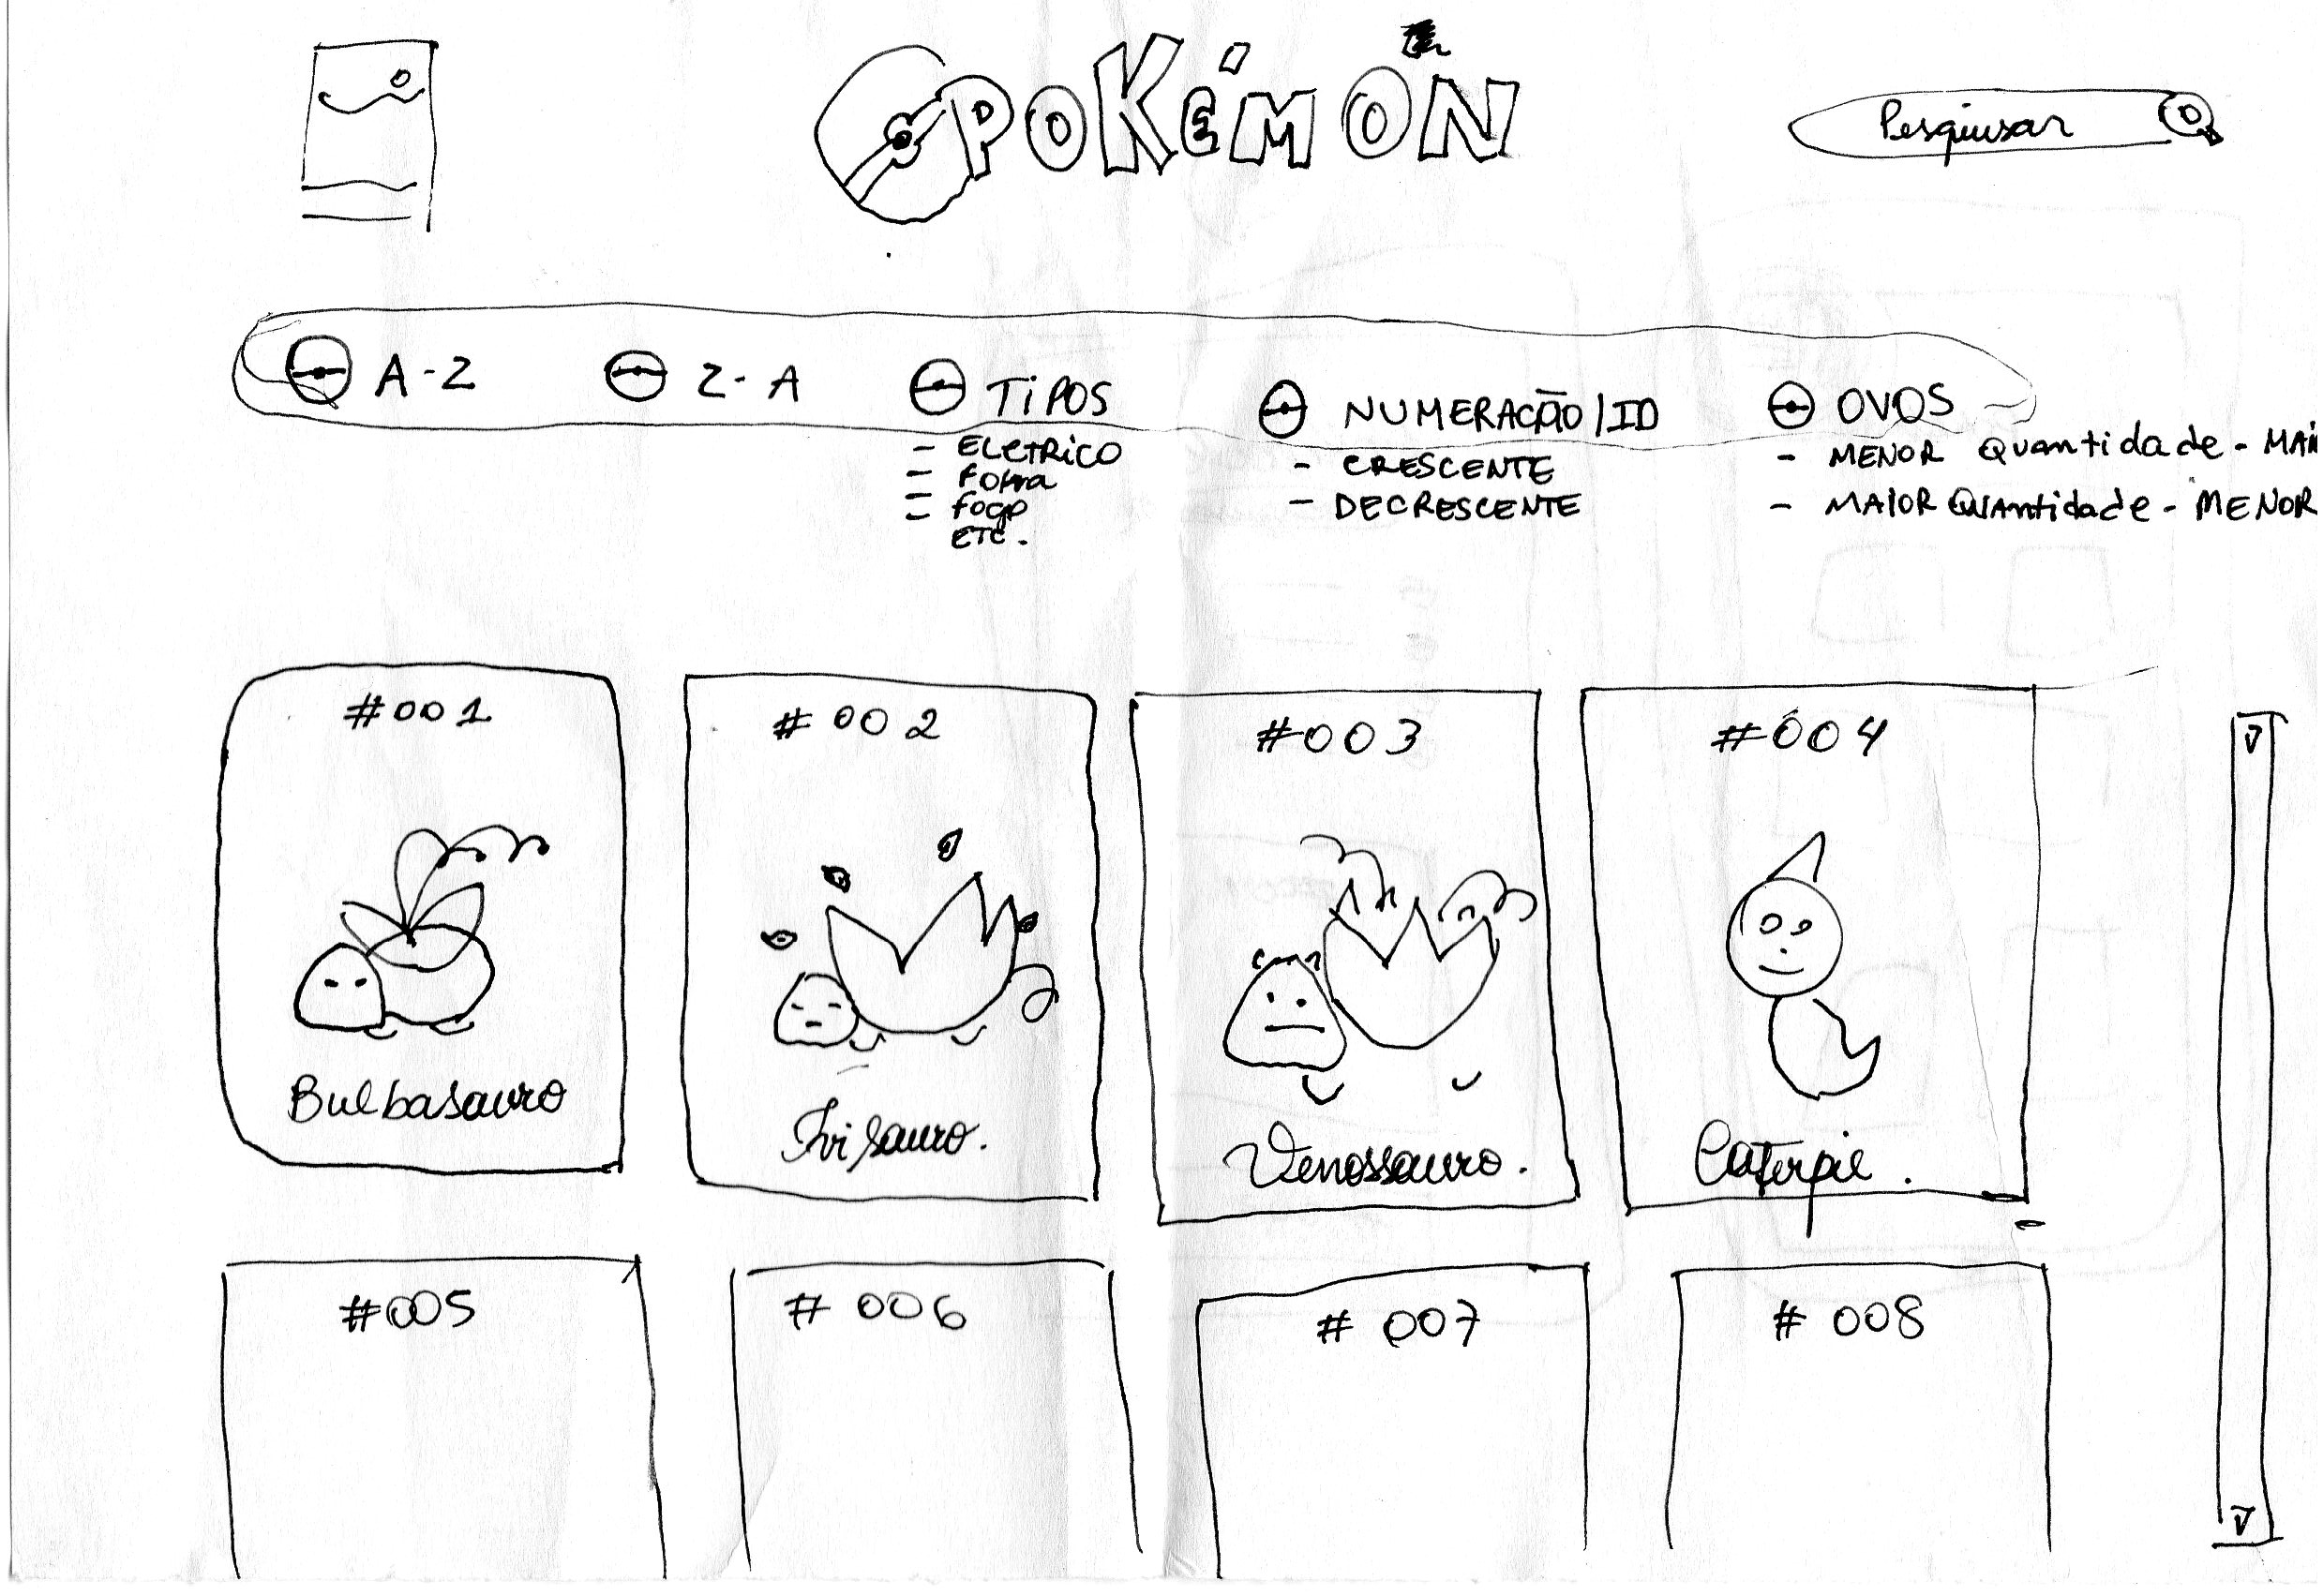 POKÉMON
Pesquisar
A-Z
Z-A
TiPOS
- ELETRiCO
- fogo
ETC.
NUMERAÇÃO/ID
- CRESCENTE
- DECRESCENTE
OVOS
- MENOR Quantidade - MAi
- MAIOR Quantidade - MENOR
#001
Bulbasauro
#002
Ivisauro.
#003
Venossauro.
#004
Caterpie.
#005
#006
#007
#008